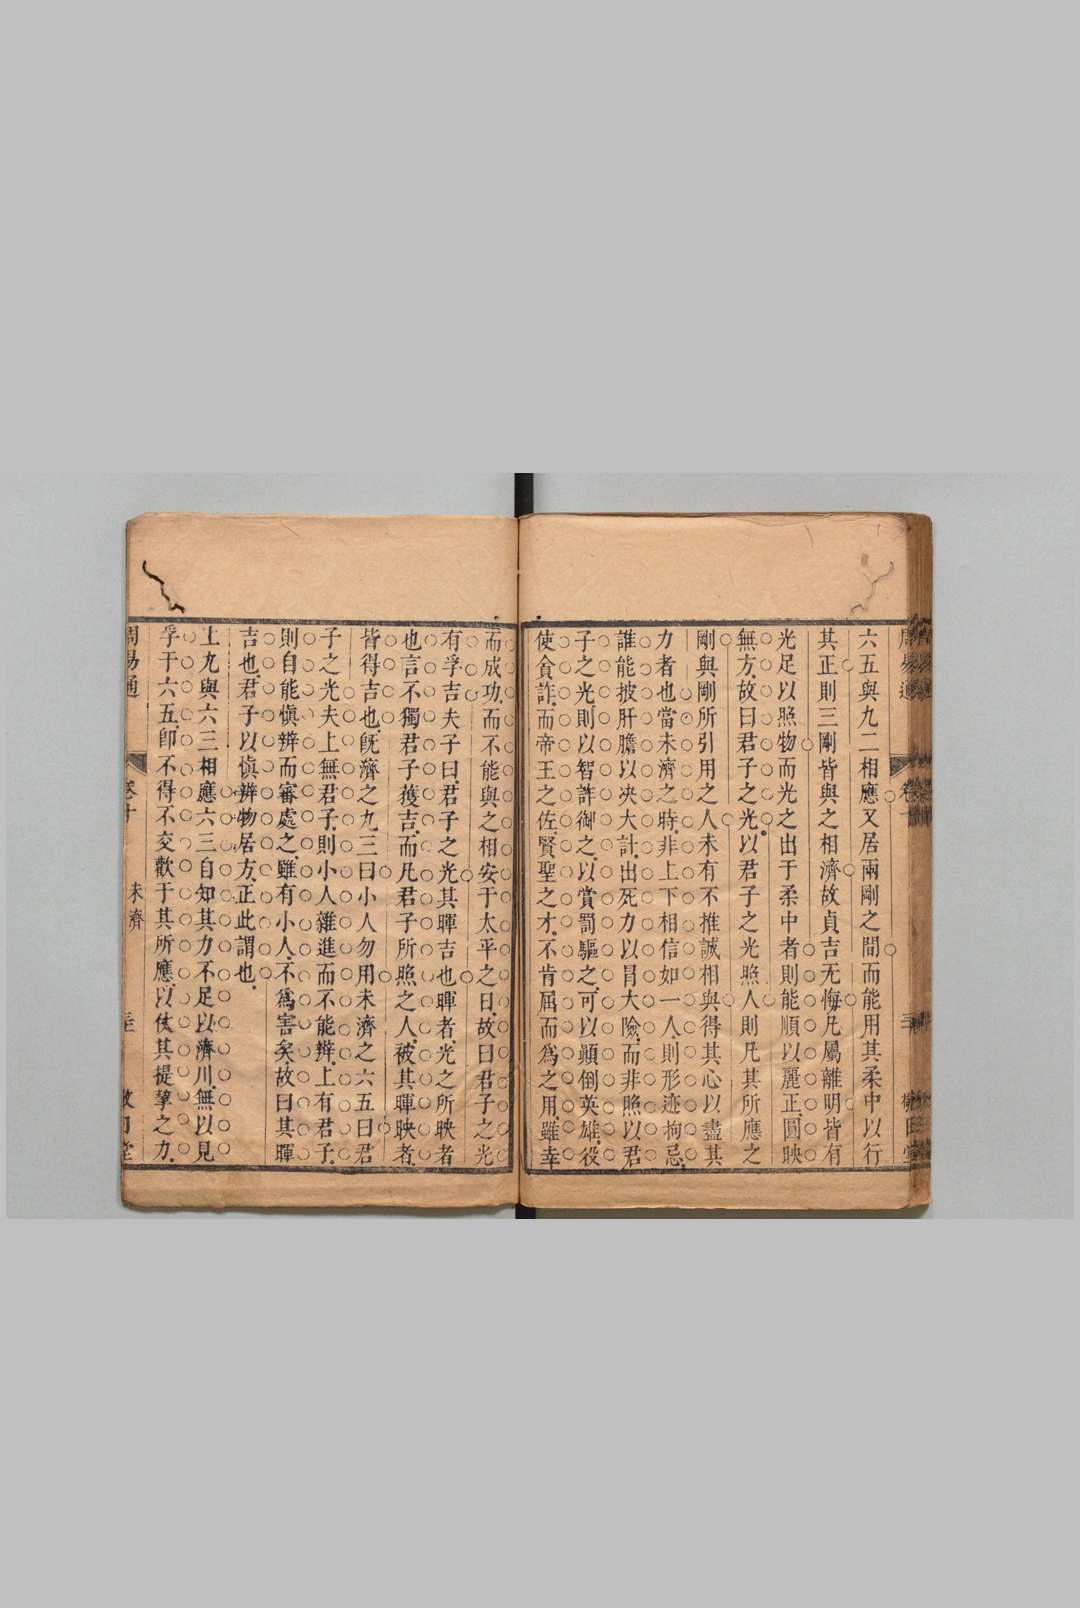 六五與九二相應又居兩剛之間而能用其柔中以行
其正則三剛皆與之相濟故貞吉无悔凡屬離明皆有
光足以照物而光之出于柔中者則能順以麗正圓映
無方故曰君子之光以君子之光照人則凡其所應之
剛與剛所引用之人未有不推誠相與得其心以盡其
力者也當未濟之時非上下相信如一人則形迹拘忌
誰能披肝膽以决大計出死力以冐大險而非照以君
子之光則以智詐御之以賞罰驅之可以顛倒英雄役
使貪詐而帝王之佐賢聖之才不肯屈而爲之用雖幸
而成功而不能與之相安于太平之日故曰君子之光
有孚吉夫子曰君子之光其暉吉也暉者光之所映者
也言不獨君子獲吉而凡君子所照之人被其暉映者
皆得吉也旣濟之九三曰小人勿用未濟之六五曰君
子之光夫上無君子則小人雜進而不能辩上有君子
則自能愼辨而審處之雖有小人不爲害矣故曰其暉
吉也君子以愼辨物居方正此謂也
上九與六三相應六三自知其力不足以濟川無以見
孚于六五卽不得不交歡于其所應以仗其提挈之力
周易通
卷十
未濟